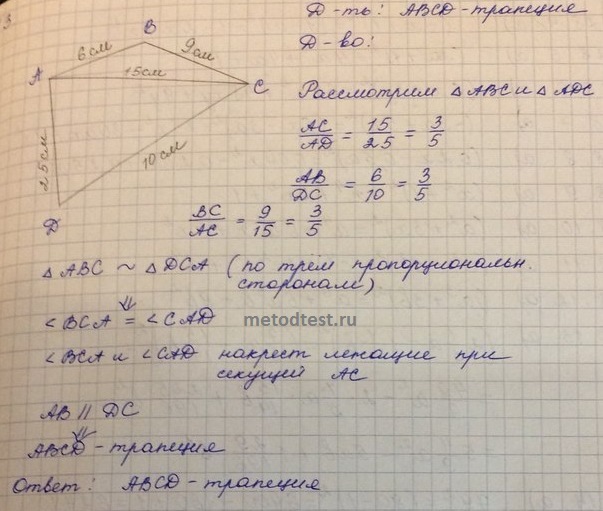 3
Д-ть: ABCD-трапеция
Д-во:
B
6см
9см
A
15см
C
25см
10см
D
Рассмотрим △ABC и △ADC
AC/AD = 15/25 = 3/5
AB/DC = 6/10 = 3/5
BC/AC = 9/15 = 3/5
△ABC ~ △DCA (по трем пропорциональн.
сторонам)
⇓
∠BCA = ∠CAD
metodtest.ru
∠BCA и ∠CAD накрест лежащие при
секущей AC
AB || DC
⇓
ABCD-трапеция
Ответ: ABCD-трапеция